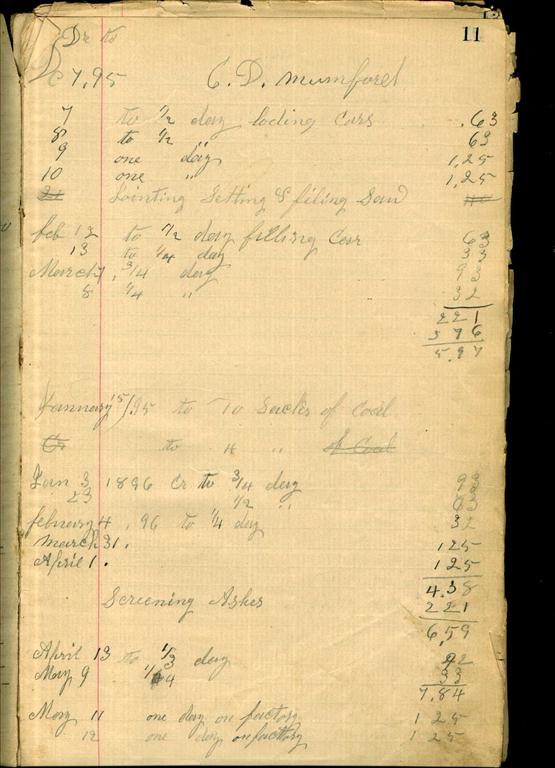 11
Dr to
Dec 7, 95 C. D. Mumford
7 to 1/2 day loding Cars .63
8 to 1/2 " 63
9 one day 1,25
10 one " 1,25
Jointing Setting & filing Saw
Feb 12 to 1/2 day filling Car 63
13 to 1/4 day 33
March 7, 3/4 day 93
8 1/4 " 32
221
376
5,97
January 15/95 to 10 Sacks of Coal
Cr to 4 " of Coal
Jan 3 1896 Cr to 3/4 day 93
23 1/2 " 63
february 4, 96 to 1/4 day 32
March 31. 125
April 1. 125
4.38
Screening Ashes 221
6,59
April 13 to 1/3 day 92
May 9 1/4 33
7,84
May 11 one day on factory 125
12 one day on factory 125